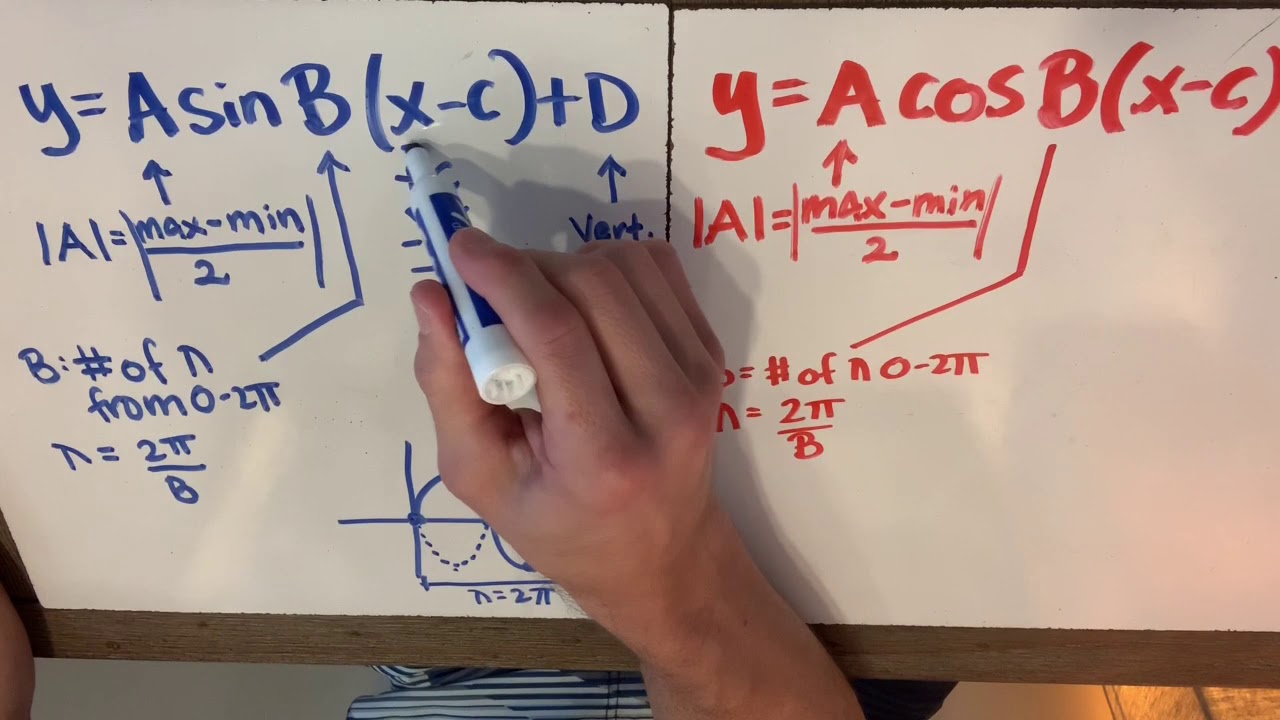 y=AsinB(x-c)+D
|A|=|max-min/2|
Vert.
B:# of λ
from 0-2π
λ= 2π/B
λ=2π
y=AcosB(x-c)
|A|=|max-min/2|
=# of λ 0-2π
λ= 2π/B